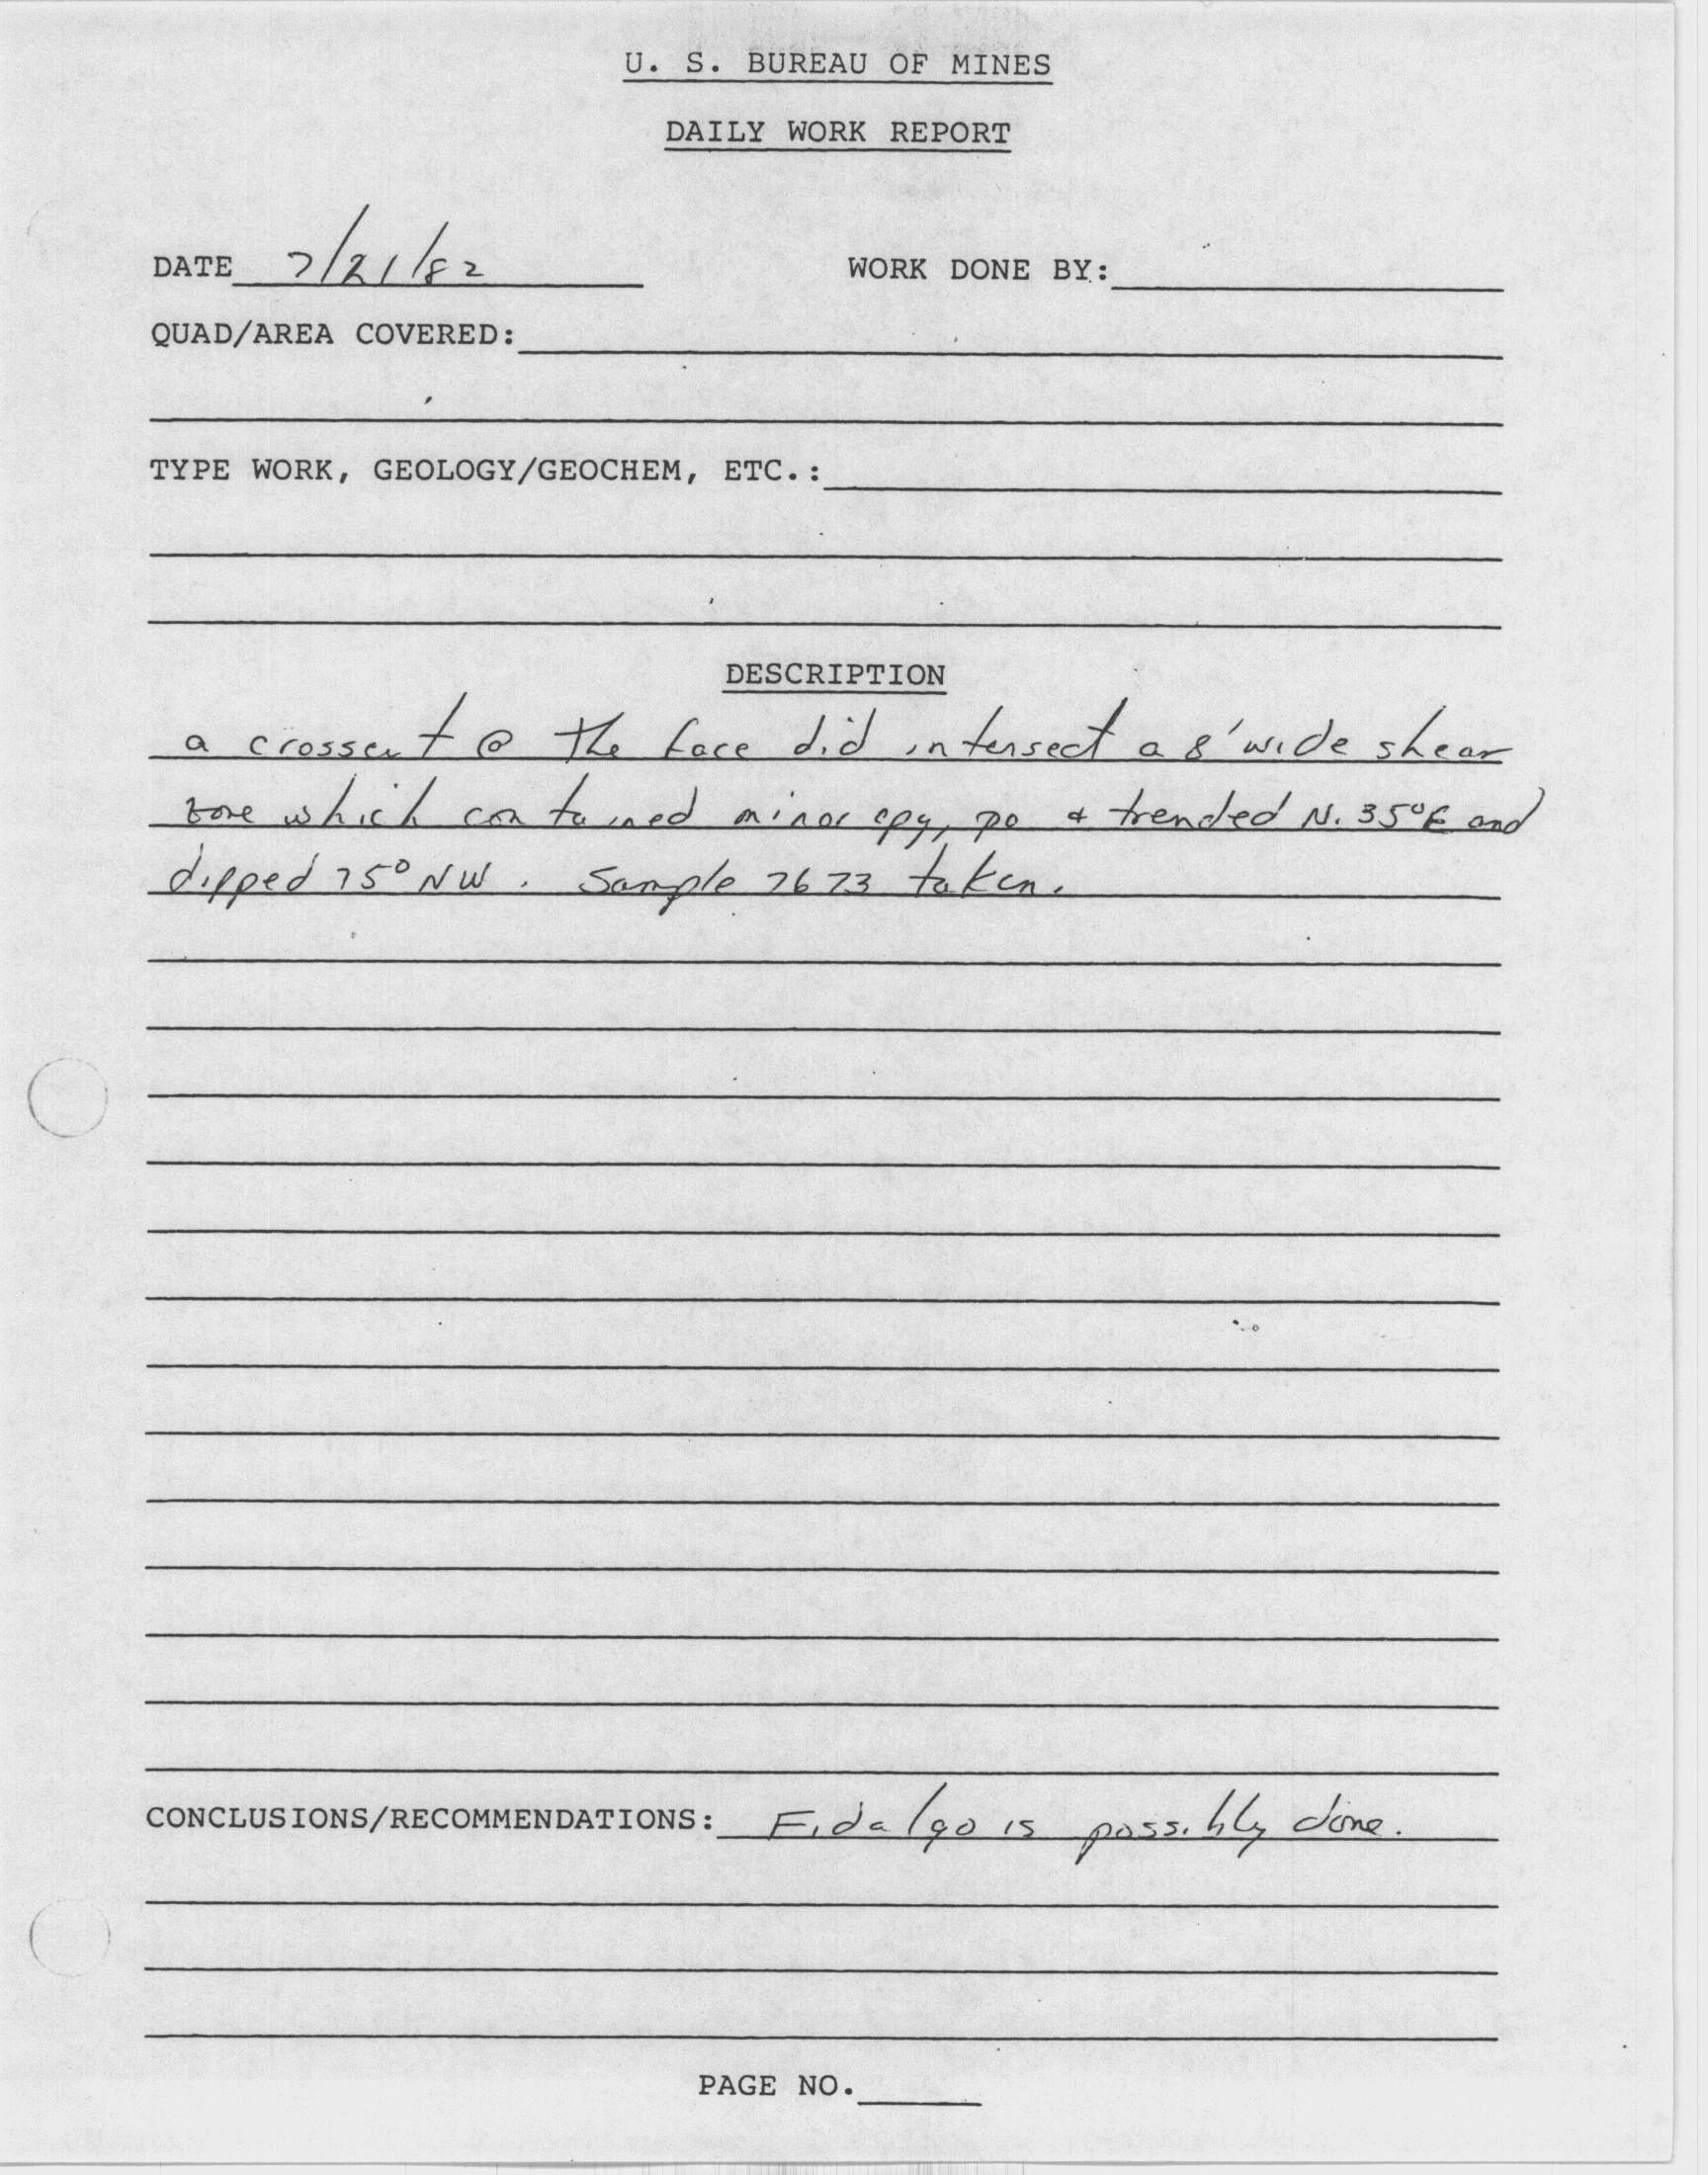 U. S. BUREAU OF MINES
DAILY WORK REPORT
DATE 7/21/82 WORK DONE BY:
QUAD/AREA COVERED:
TYPE WORK, GEOLOGY/GEOCHEM, ETC.:
DESCRIPTION
a crosscut @ the face did intersect a 8' wide shear
zone which contained minor cpy, po & trended N. 35°E and
dipped 75° NW. Sample 7673 taken.
CONCLUSIONS/RECOMMENDATIONS: Fidalgo is possibly done.
PAGE NO.